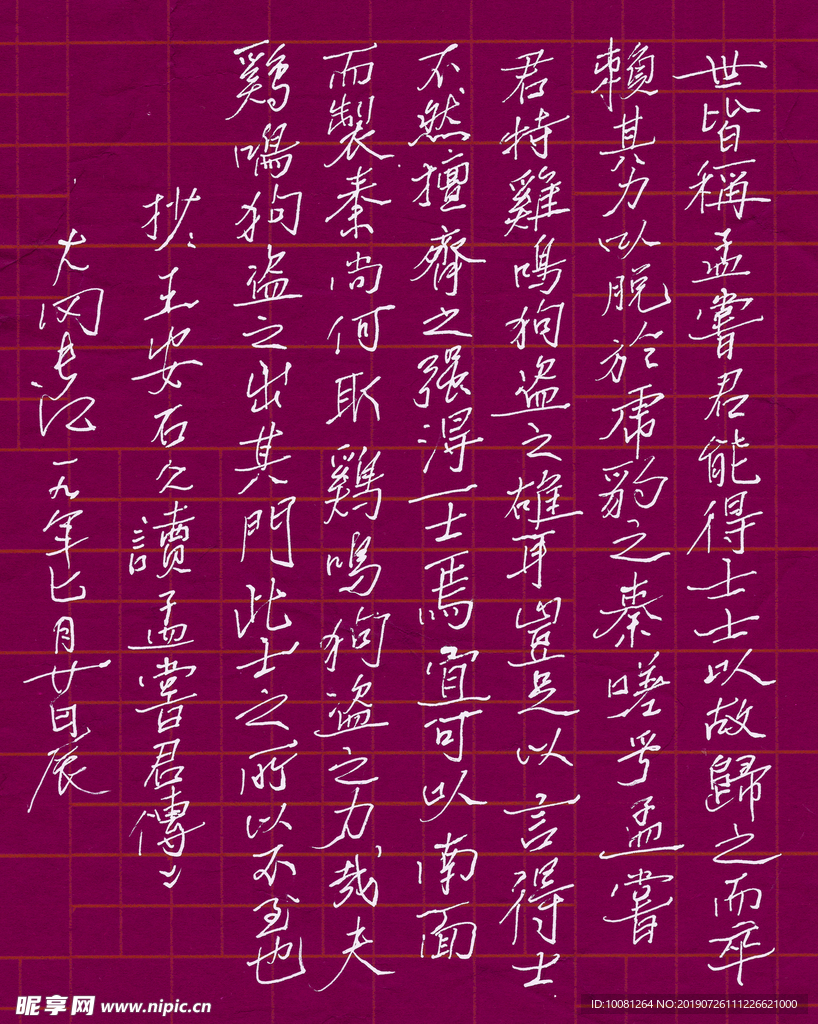 世皆稱孟嘗君能得士士以故歸之而卒
賴其力以脫於虎豹之秦嗟乎孟嘗
君特雞鳴狗盗之雄耳豈足以言得士
不然擅齊之强得一士焉宜可以南面
而製秦尚何取鷄鳴狗盗之力哉夫
鷄鳴狗盗之出其門此士之所以不至也
抄王安石讀孟嘗君傳
一九年七月廿日辰
昵享网 www.nipic.cn
ID:10081264 NO:20190726111226621000